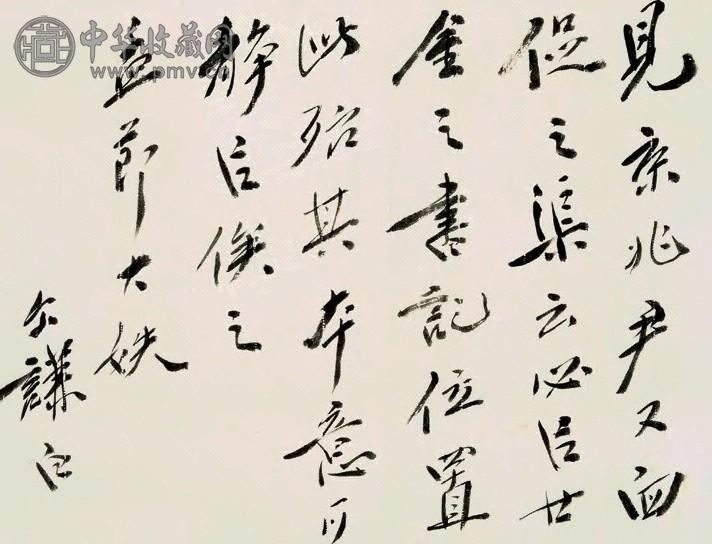 見京兆尹又面
促之渠云必㠯廿
金之書記位置
此殆其本意可
靜㠯俟之
孟節大妷
謙白
中华收藏网
www.pmv.cn